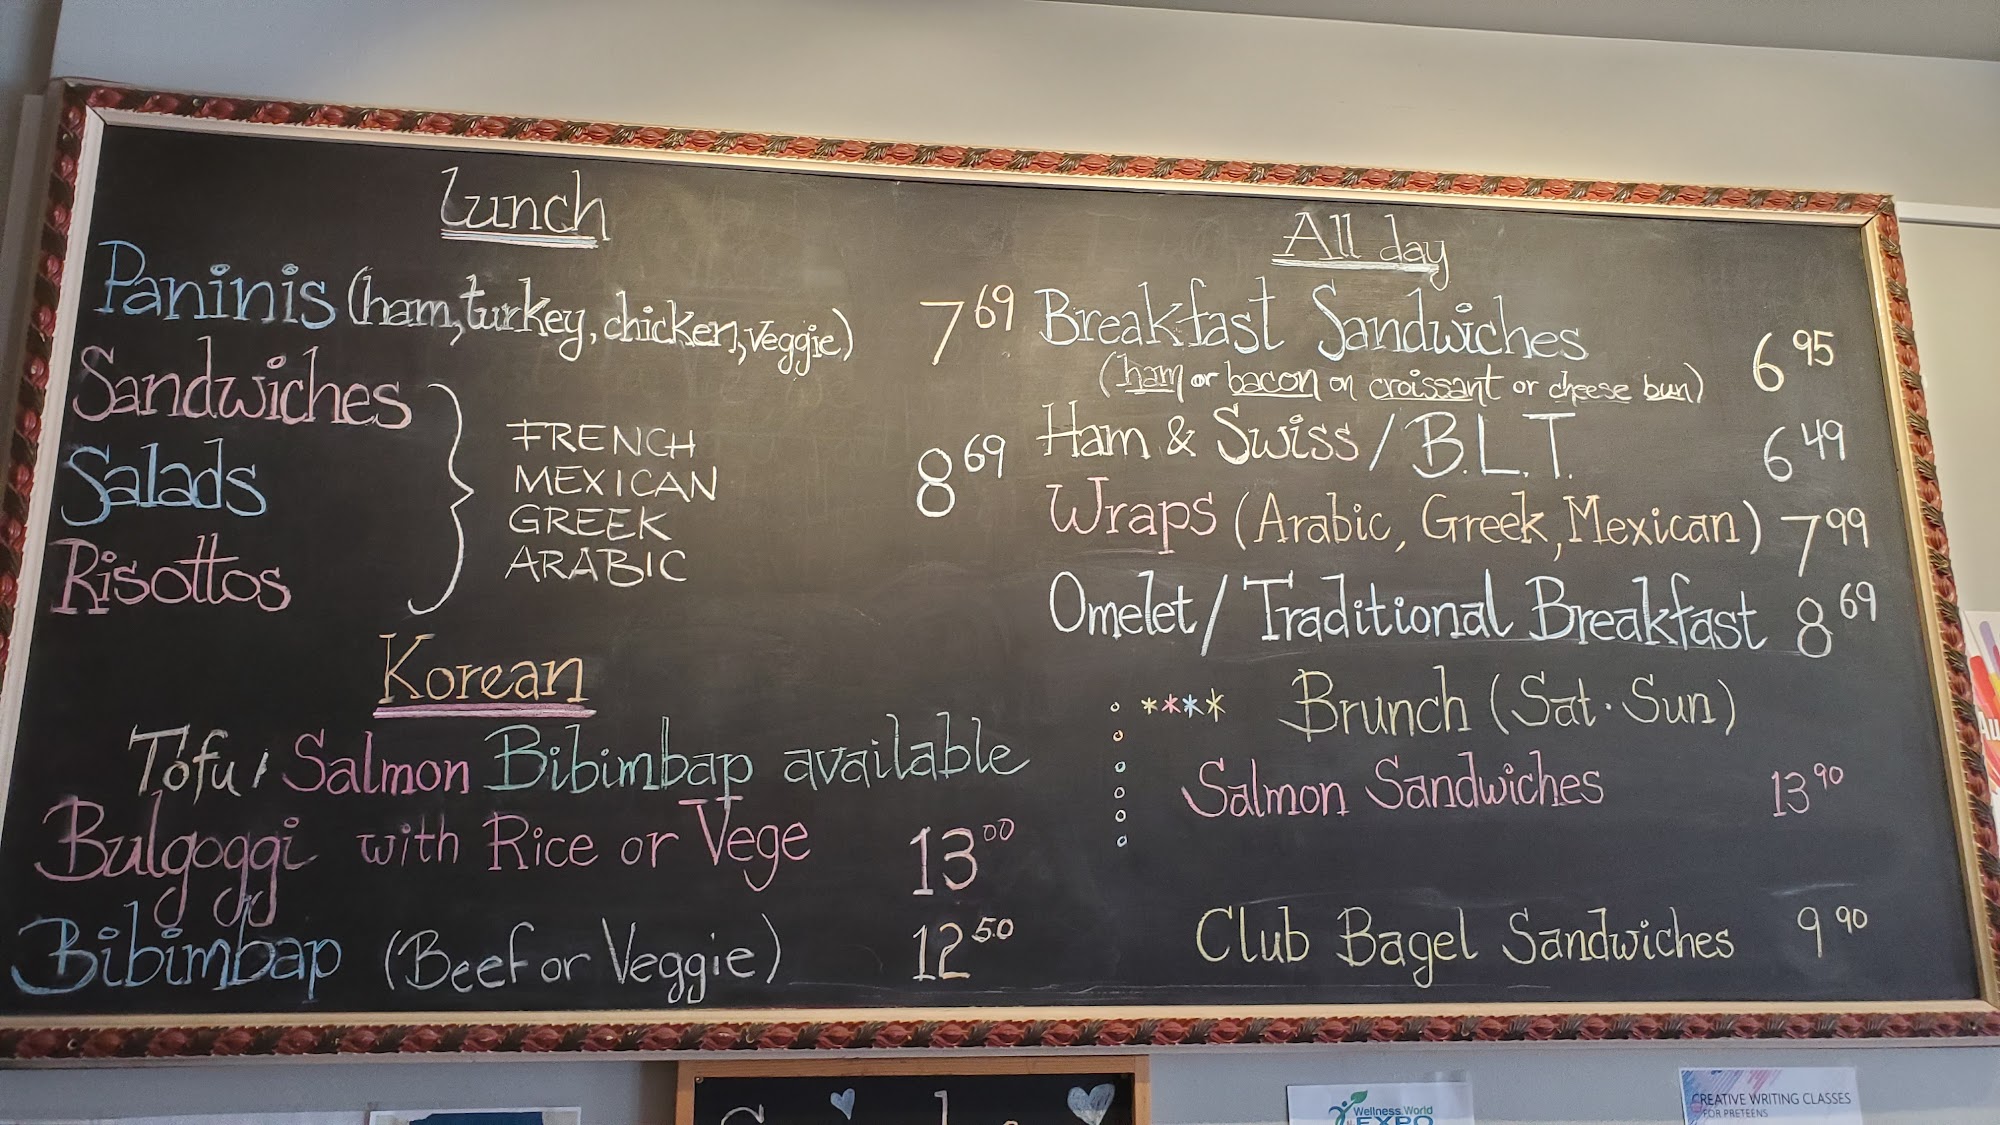 Lunch
Paninis (ham, turkey, chicken, veggie) 7 69
Sandwiches
Salads
Risottos
FRENCH
MEXICAN
GREEK
ARABIC
8 69
Korean
Tofu, Salmon Bibimbap available
Bulgoggi with Rice or Vege 13 00
Bibimbap (Beef or Veggie) 12 50
All day
Breakfast Sandwiches 6 95
(ham or bacon on croissant or cheese bun)
Ham & Swiss / B.L.T. 6 49
Wraps (Arabic, Greek, Mexican) 7 99
Omelet / Traditional Breakfast 8 69
**** Brunch (Sat · Sun)
Salmon Sandwiches 13 90
Club Bagel Sandwiches 9 90
Wellness World
EXPO
CREATIVE WRITING CLASSES
FOR PRETEENS